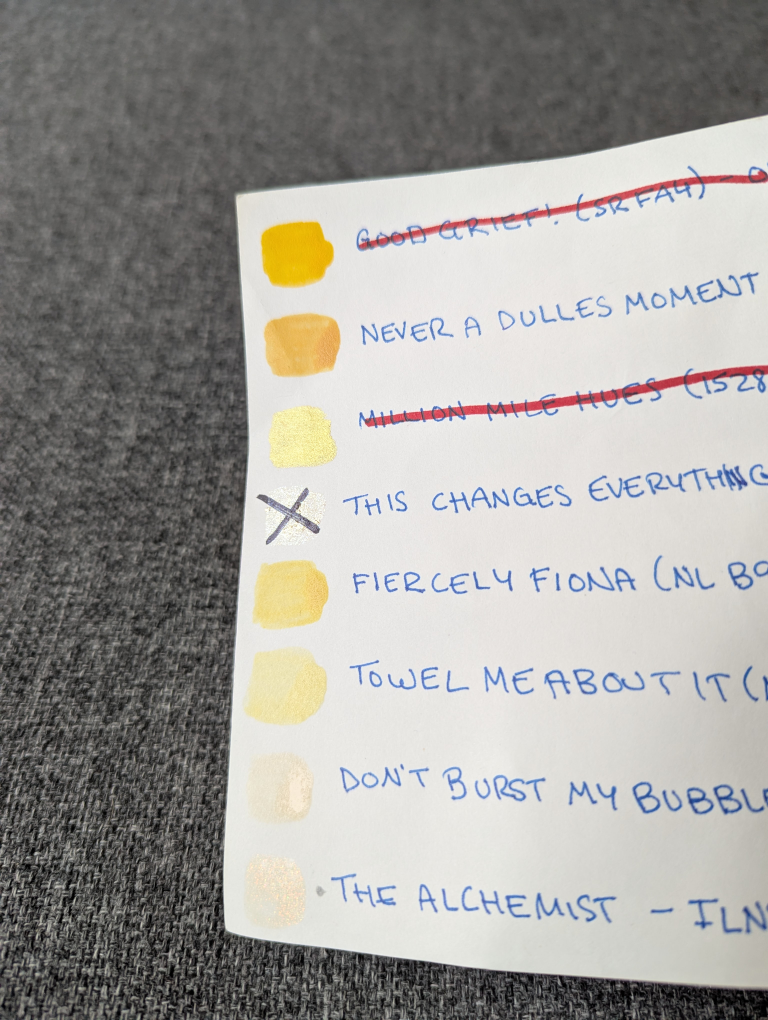 GOOD GRIEF! (SRFA4) - O
NEVER A DULLES MOMENT
MILLION MILE HUES (1528
THIS CHANGES EVERYTHING
FIERCELY FIONA (NL B9
TOWEL ME ABOUT IT (
DON'T BURST MY BUBBLE
THE ALCHEMIST - ILN